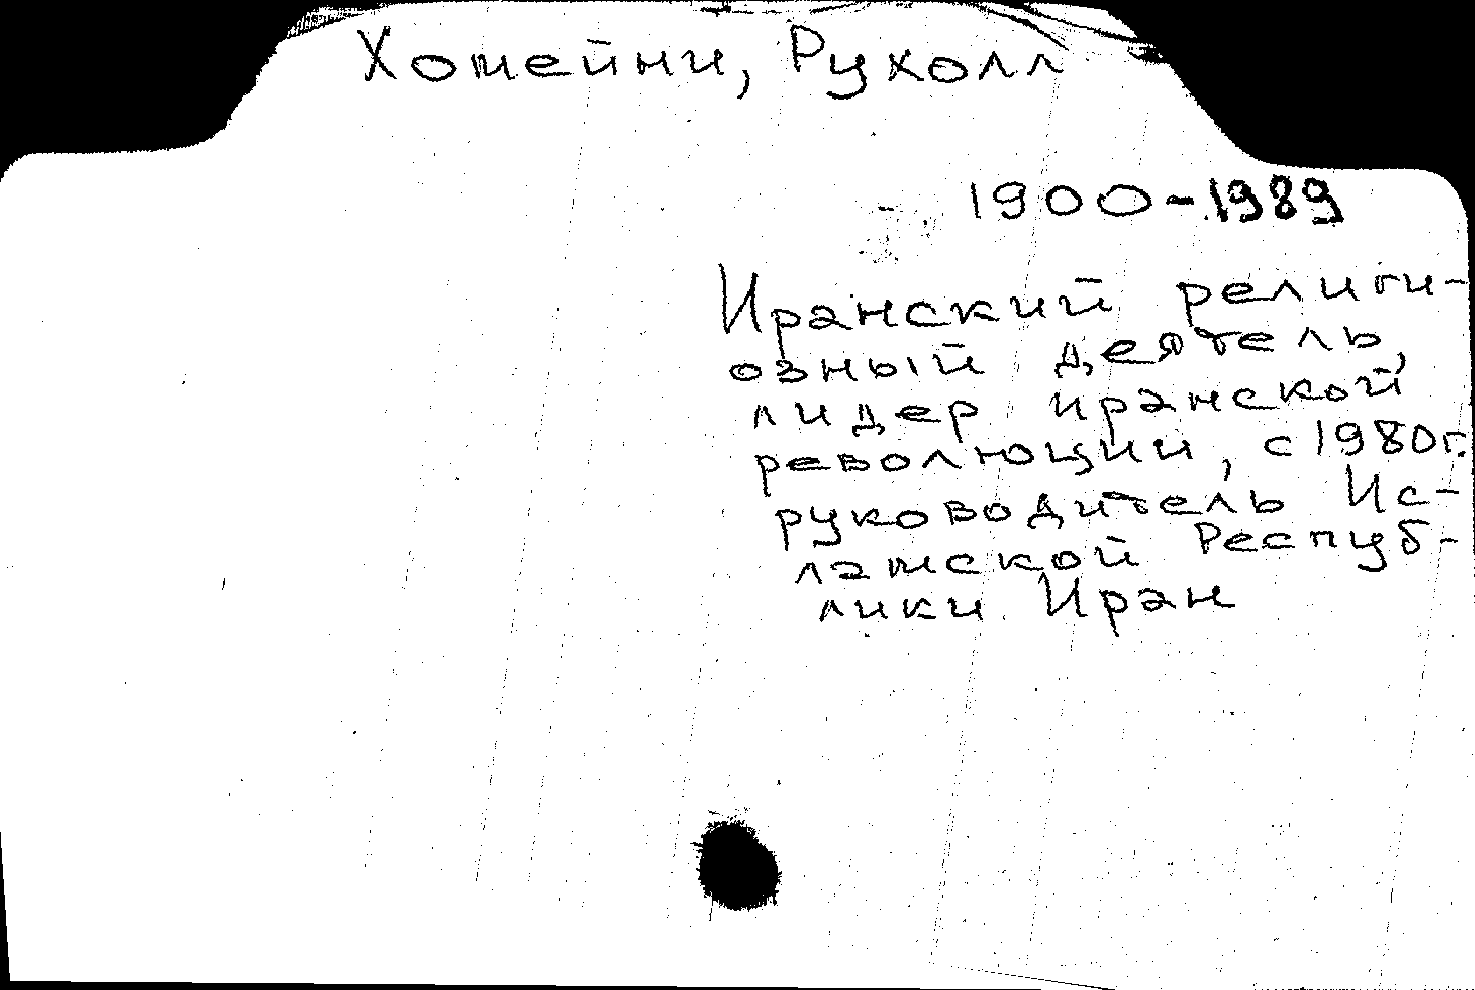 Хомейни, Рухолл
1900-1989
Иранский религи-
озный деятель,
лидер иранской
революции, с 1980г.
руководитель Ис-
ламской Респуб-
лики Иран